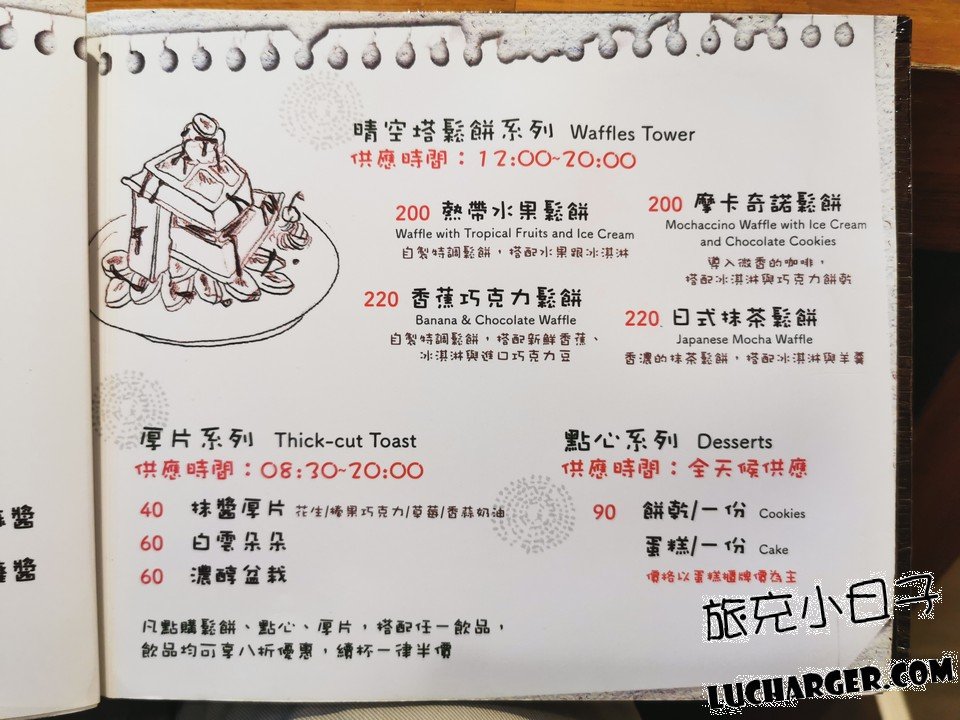 晴空塔鬆餅系列 Waffles Tower
供應時間：12:00~20:00
200 熱帶水果鬆餅
Waffle with Tropical Fruits and Ice Cream
自製特調鬆餅，搭配水果跟冰淇淋
200 摩卡奇諾鬆餅
Mochaccino Waffle with Ice Cream
and Chocolate Cookies
導入微香的咖啡，
搭配冰淇淋與巧克力餅乾
220 香蕉巧克力鬆餅
Banana & Chocolate Waffle
自製特調鬆餅，搭配新鮮香蕉、
冰淇淋與進口巧克力豆
220 日式抹茶鬆餅
Japanese Mocha Waffle
香濃的抹茶鬆餅，搭配冰淇淋與羊羹
厚片系列 Thick-cut Toast
供應時間：08:30~20:00
40 抹醬厚片 花生/榛果巧克力/草莓/香蒜奶油
60 白雲朵朵
60 濃醇盆栽
點心系列 Desserts
供應時間：全天候供應
90 餅乾/一份 Cookies
蛋糕/一份 Cake
價格以蛋糕櫃牌價為主
凡點購鬆餅、點心、厚片，搭配任一飲品，
飲品均可享八折優惠，續杯一律半價
醬
醬
旅充小日子
LUCHARGER.COM